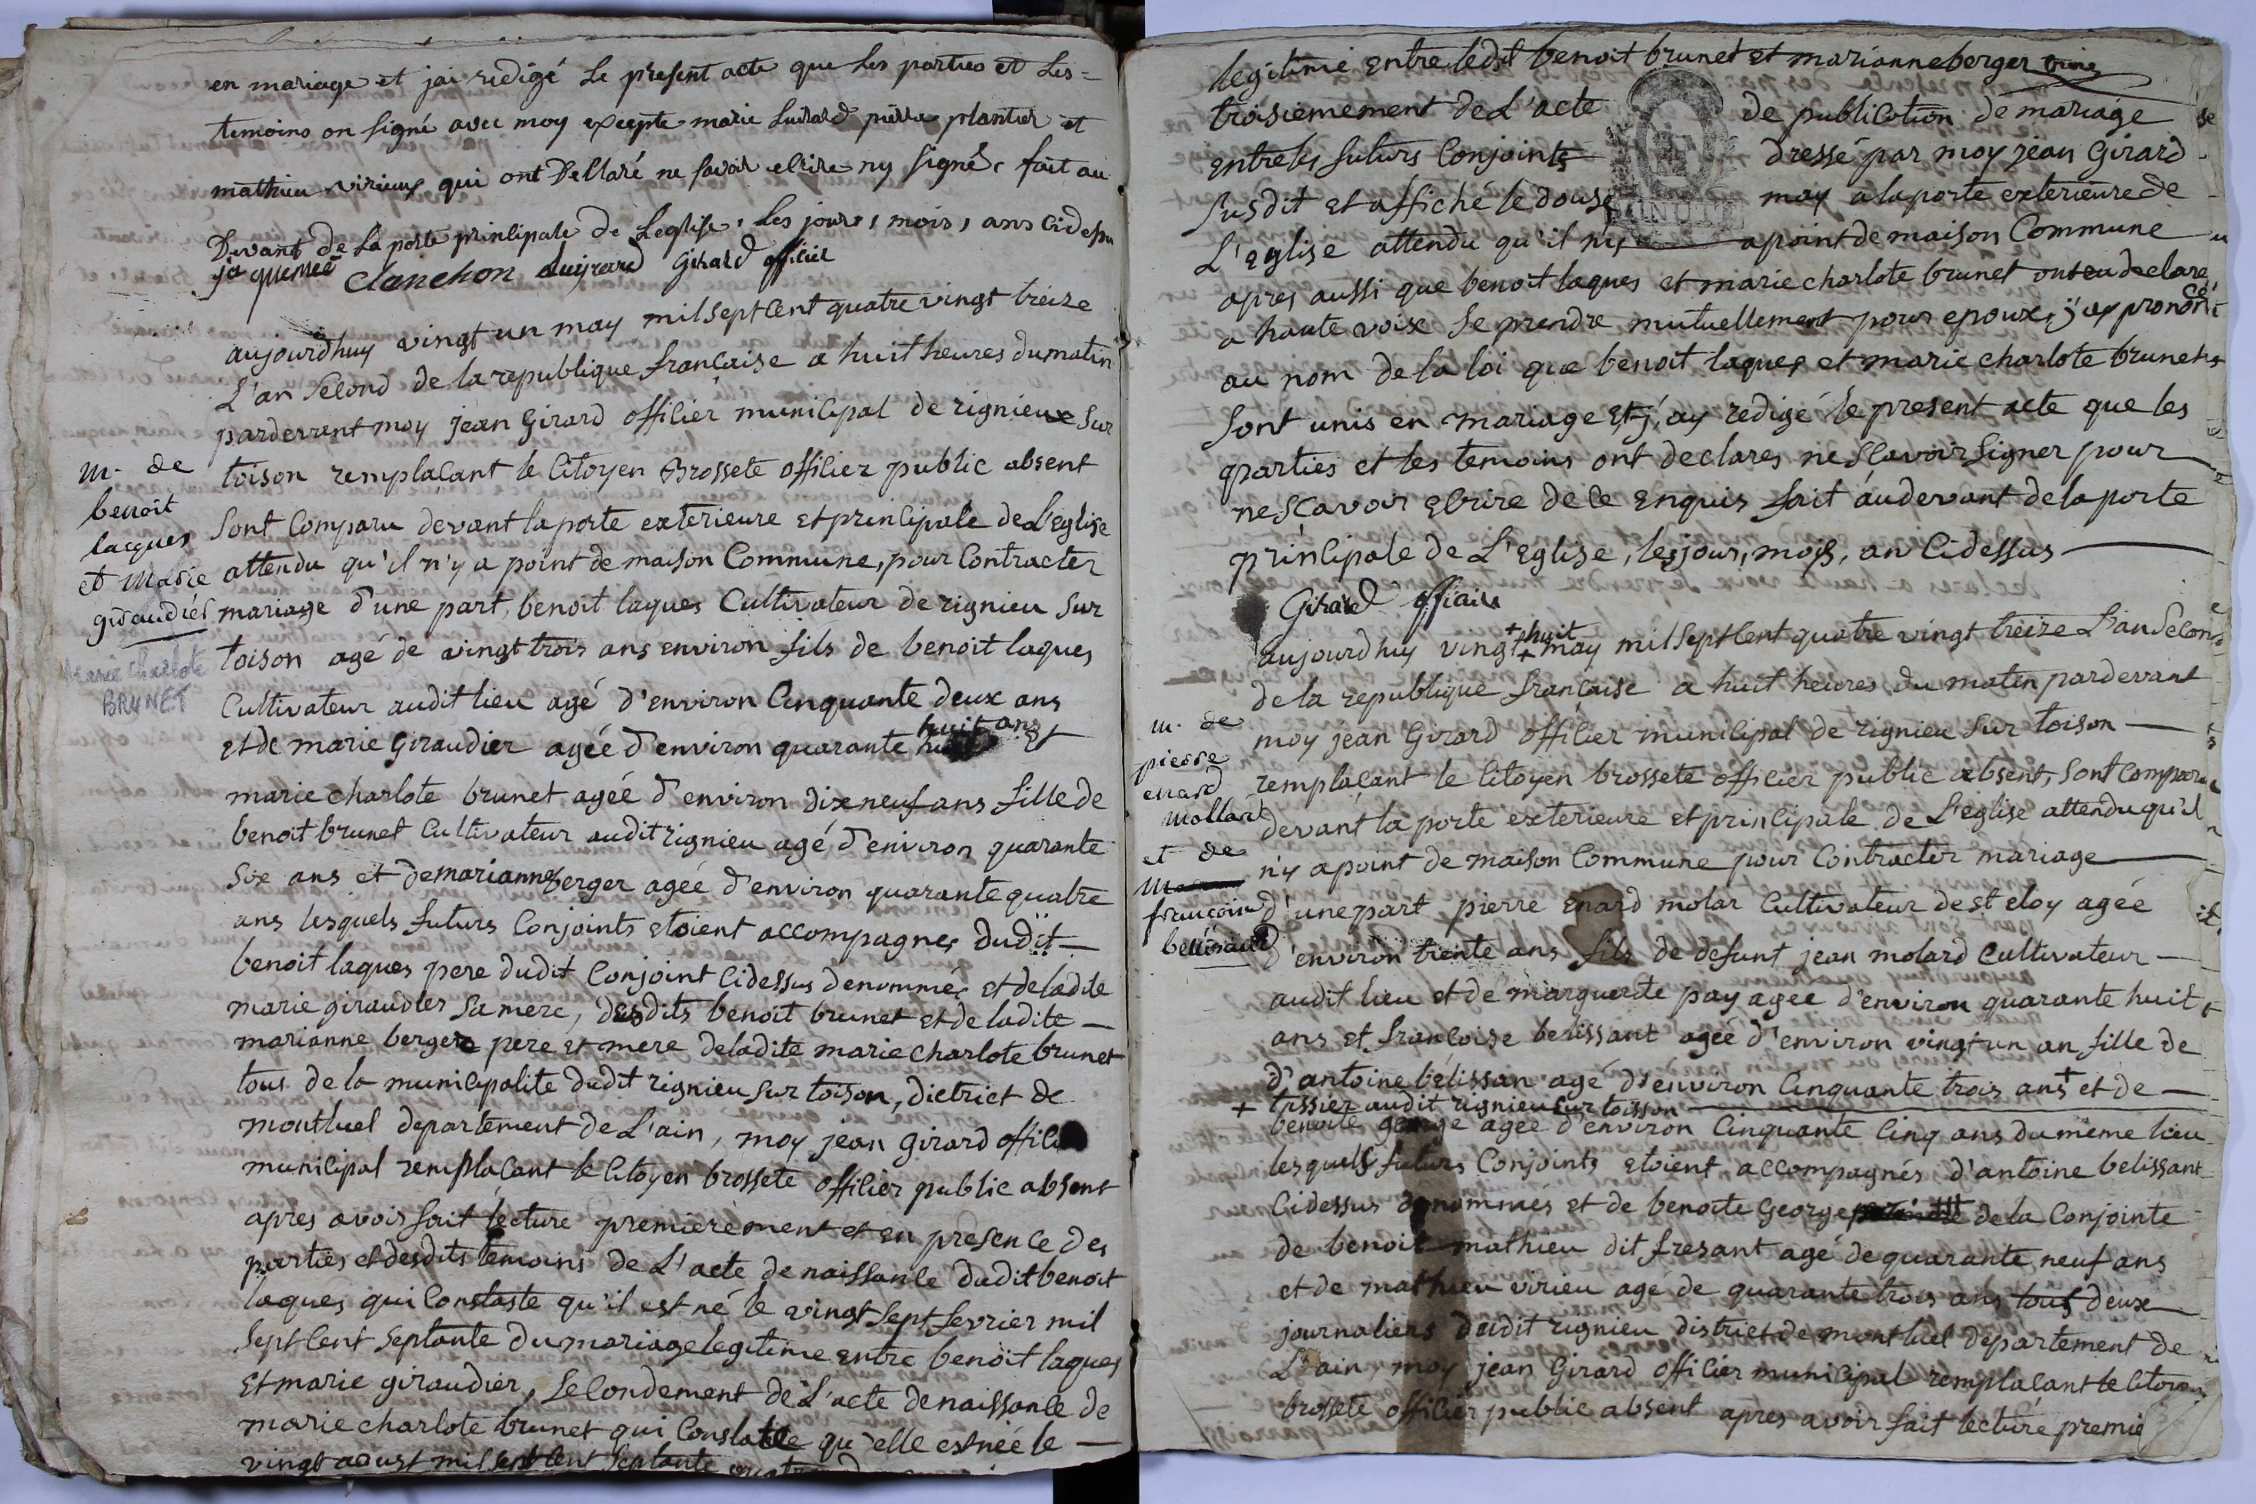 en mariage et jai redigé le present acte que les parties et les=
temoins on signé avec moy excepte marie pierre plantier et
mathieu virieux qui ont declaré ne savoir ecrire ny signé. fait au
Devant de la porte principale de Leglise, les jours, mois, ans cidessu
clanchon Girard officier
aujourdhuy vingt un may mil sept cent quatre vingt treize
L'an second de la republique francaise a huit heures du matin
pardevant moy jean Girard officier municipal de rignieux sur
toison remplacant le citoyen Brossete officier public absent
sont comparu devant la porte exterieure et principale de L'eglise
attendu qu'il n'y a point de maison Commune, pour Contracter
mariage d'une part, benoit laques Cultivateur de rignieu sur
toison agé de vingt trois ans environ fils de benoit laques
Cultivateur audit lieu agé d'environ Cinquante deux ans
et de marie giraudier agéé d'environ quarante huit ans et
marie charlote brunet agéé d'environ dixneuf ans fille de
benoit brunet Cultivateur audit rignieu agé d'environ quarante
six ans et de marianne berger agéé d'environ quarante quatre
ans lesquels futurs Conjoints etoient accompagnes dudit
benoit laques pere dudit Conjoint cidessus denommés et deladite
marie giraudier sa mere, desdits benoit brunet et de ladite
marianne bergere pere et mere deladite marie charlote brunet
tous de la municipalite dudit rignieu sur toison, dietrict de
montluel departement de L'ain, moy jean girard offici
municipal remplacant le Citoyen brossete officier public absent
apres avoir fait lecture premierement et en presence des
parties et desdits temoins de L'acte de naissance dudit benoit
laques qui Constaste qu'il est né le vingt sept fevrier mil
sept cent septante du mariage legitime entre benoit laques
et marie giraudier, secondement de L'acte de naissance de
marie charlote brunet qui Constate qu'elle est née le
vingt aoust mil sept cent septante
m. de
benoit
lacques
et Marie
giraudier
Marie Charlote
BRUNET
legitime entre ledit benoit brunet et marianne berger
troisiemement de L'acte de publication de mariage
entre les futurs Conjoints dressé par moy jean Girard
susdit et affiché le douse may a la porte exterieure de
L'eglise attendu qu'il ny a point de maison Commune
apres aussi que benoit laques et marie charlote brunet ont eu declare
a haute voix se prendre mutuellement pour epoux, j'ay prononcé
au nom de la loi que benoit laques et marie charlote brunet
sont unis en mariage et j'ay redigé le present acte que les
parties et les temoins ont declares ne scavoir signer pour
ne scavoir ecrire de ce enquis fait audevant de la porte
principale de L'eglise, les jour, mois, an cidessus
Girard officier
aujourdhuy vingt + huit + may mil sept cent quatre vingt treize L'an second
de la republique francaise a huit heures du maten pardevant
moy jean Girard officier municipal de rignieu sur toison
remplacant le citoyen brossete officier public absent, sont comparu
devant la porte exterieure et principale de L'eglise attendu qu'il
n'y a point de maison Commune pour Contracter mariage
d'une part pierre enard molar Cultivateur de st eloy agéé
d'environ trente ans fils de defunt jean molard Cultivateur
audit lieu et de marguerite pay agee d'environ quarante huit
ans et francoise belissant agee d'environ vingt un an fille de
d'antoine belissan agé d'environ Cinquante trois ans + et de
+ tissier audit rignieu sur toisson
benoite george agéé d'environ Cinquante Cinq ans du même lieu
lesquells futurs Conjoints etoient accompagnés d'antoine belissant
Cidessus denommés et de benoite George de la Conjointe
de benoit mathieu dit fresant agé de quarante neuf ans
et de mathieu virieu agé de quarante trois ans tous deux
journaliers dudit rignieu district de montluel departement de
L'ain, moy jean Girard officier municipal remplacant le citoyen
brossete officier public absent apres avoir fait lecture premie
m. de
pierre
enard
mollard
et de
francoise